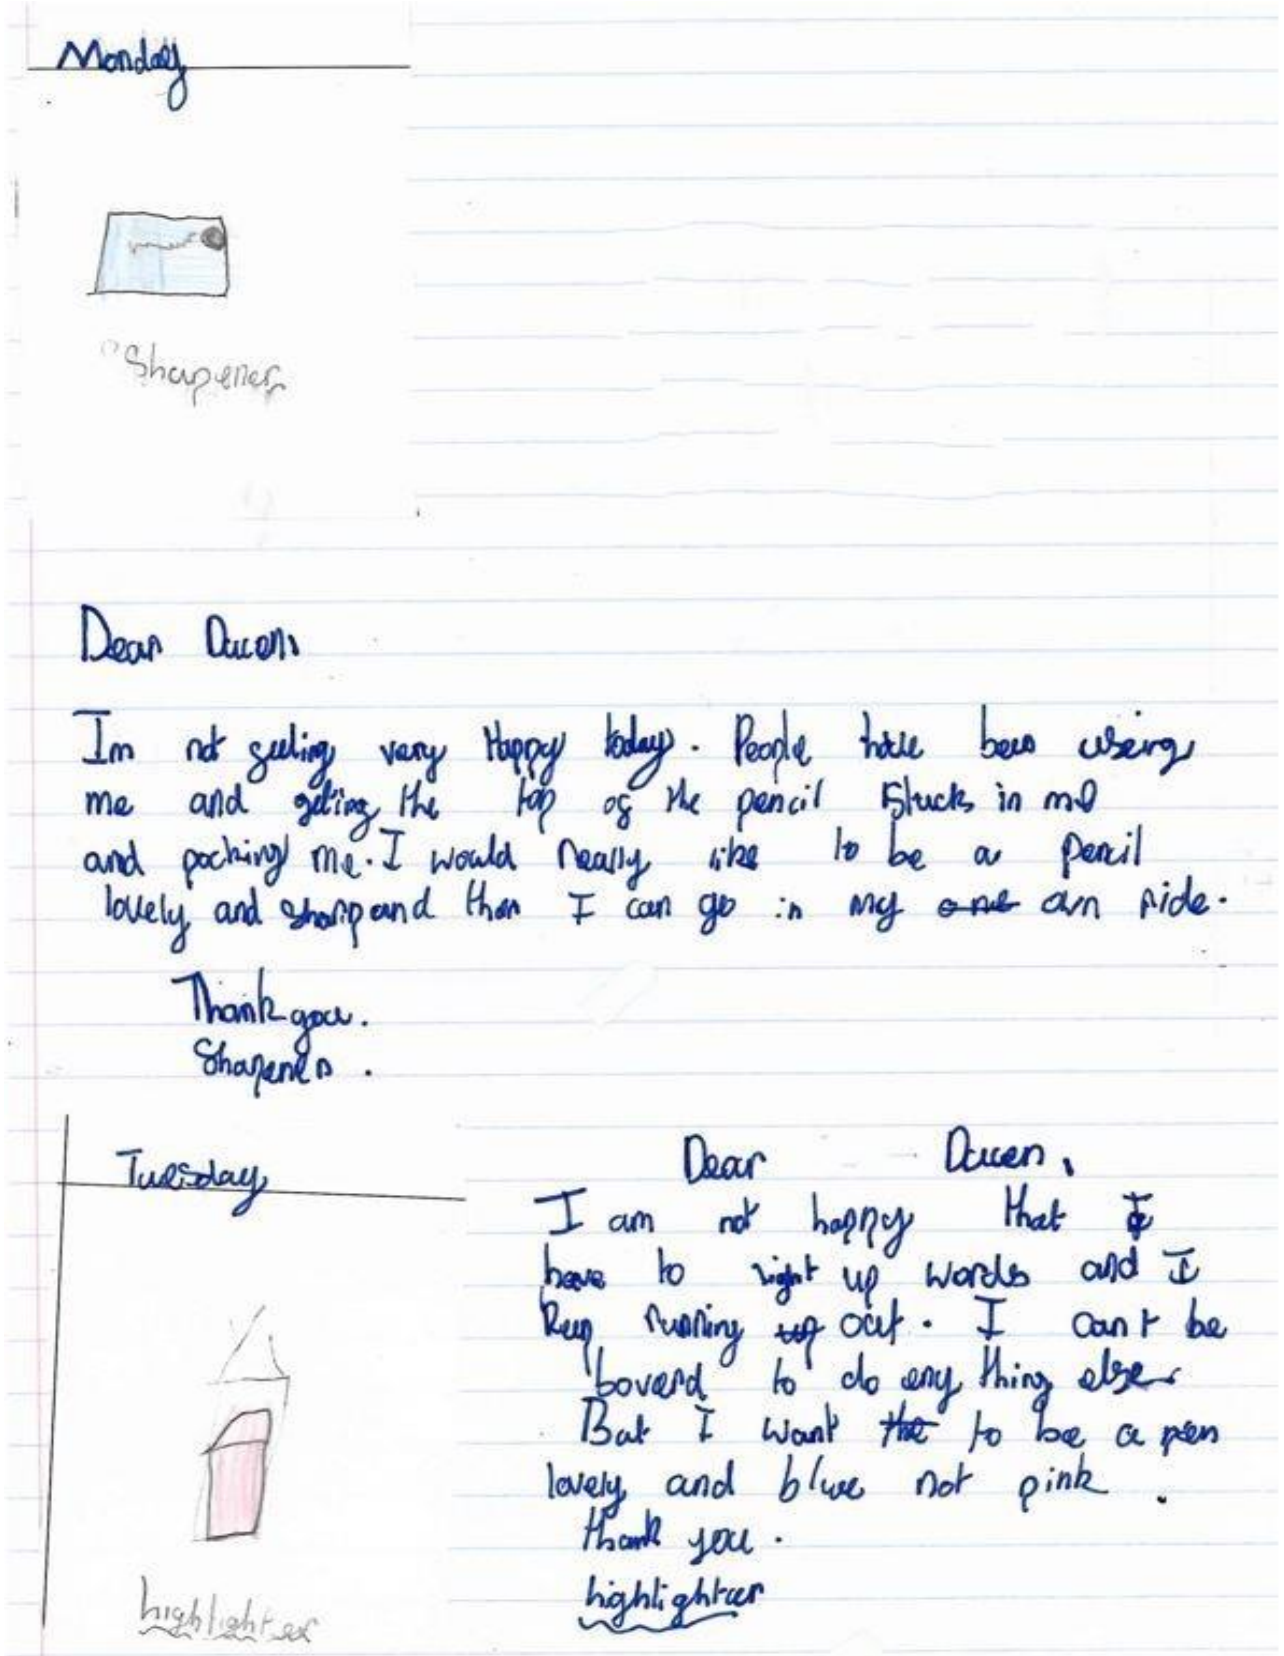 Monday
Sharpener
Dear Duuen,
Im not feeling very Happy today. People have been useing
me and geting the top of the pencil stuck in me
and pocking me. I would really like to be a pencil
lovely and sharp and then I can go in my one own ride.
Thank you.
Sharpener.
Tuesday
highlighter
Dear Duuen,
I am not happy that I
have to light up words and I
keep running up out. I can't be
boverd to do any thing else.
But I want the to be a pen
lovely and blue not pink.
thank you.
highlighter